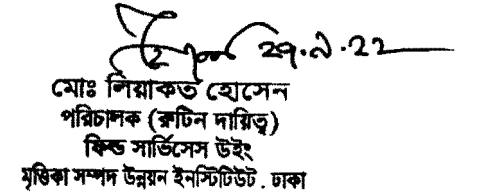 ২৭.৯.২২
মোঃ লিয়াকত হোসেন
পরিচালক (রুটিন দায়িত্ব)
ফিল্ড সার্ভিসেস উইং
মৃত্তিকা সম্পদ উন্নয়ন ইনস্টিটিউট, ঢাকা